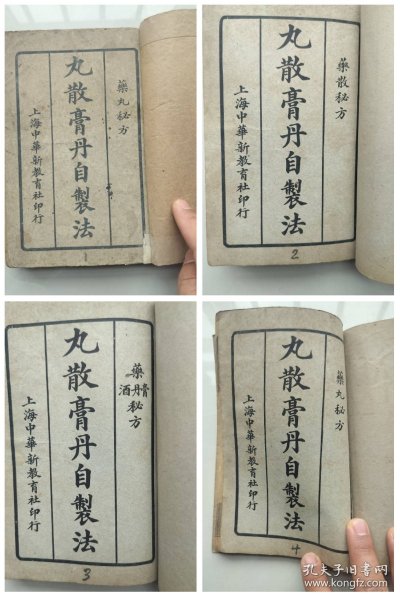 藥丸秘方
丸散膏丹自製法
上海中華新教育社印行
1
藥散秘方
丸散膏丹自製法
上海中華新教育社印行
2
藥膏丹酒秘方
丸散膏丹自製法
上海中華新教育社印行
3
藥丸秘方
丸散膏丹自製法
上海中華新教育社印行
4
孔夫子旧书网
www.kongfz.com